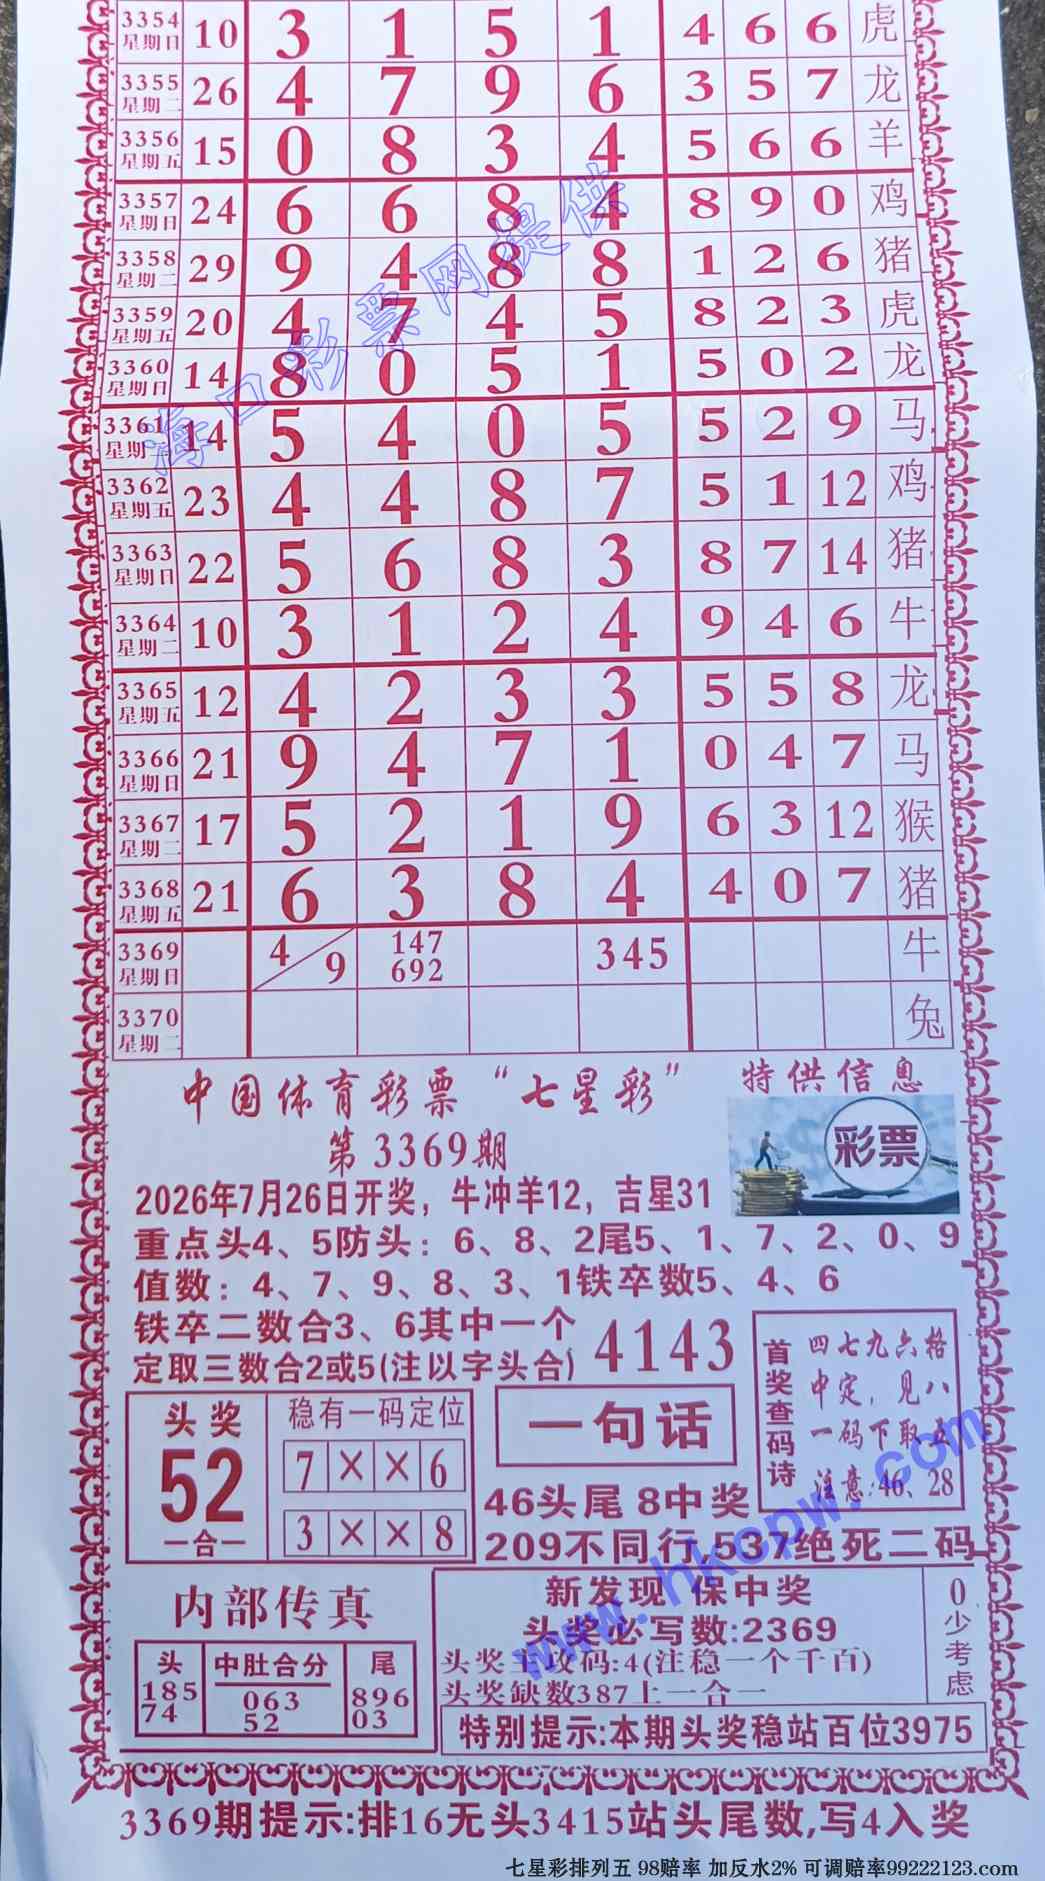 3354 星期日 10 3 1 5 1 4 6 6 虎
3355 星期二 26 4 7 9 6 3 5 7 龙
3356 星期五 15 0 8 3 4 5 6 6 羊
3357 星期日 24 6 6 8 4 8 9 0 鸡
3358 星期二 29 9 4 8 8 1 2 6 猪
3359 星期五 20 4 7 4 5 8 2 3 虎
3360 星期日 14 8 0 5 1 5 0 2 龙
3361 星期 14 5 4 0 5 5 2 9 马
3362 星期五 23 4 4 8 7 5 1 12 鸡
3363 星期日 22 5 6 8 3 8 7 14 猪
3364 星期二 10 3 1 2 4 9 4 6 牛
3365 星期五 12 4 2 3 3 5 5 8 龙
3366 星期日 21 9 4 7 1 0 4 7 马
3367 星期二 17 5 2 1 9 6 3 12 猴
3368 星期五 21 6 3 8 4 4 0 7 猪
3369 星期日 4/9 147 692 345 牛
3370 星期二 兔
海口彩票网提供
中国体育彩票“七星彩” 特供信息
彩票
第3369期
2026年7月26日开奖，牛冲羊12，吉星31
重点头4、5防头：6、8、2尾5、1、7、2、0、9
值数：4、7、9、8、3、1铁卒数5、4、6
铁卒二数合3、6其中一个
定取三数合2或5(注以字头合)
4143
首奖查码诗
四七九六格
中定，见八
一码下取五
注意:46、28
头奖
52
一合一
稳有一码定位
7 × × 6
3 × × 8
一句话
46头尾 8中奖
209不同行,537绝死二码
www.hkcpw.com
内部传真
头 中肚合分 尾
185 063 896
74 52 03
新发现 保中奖
头奖必写数:2369
头奖主攻码:4(注稳一个千百)
头奖缺数387上一合一
0少考虑
特别提示:本期头奖稳站百位3975
3369期提示:排16无头3415站头尾数,写4入奖
七星彩排列五 98赔率 加反水2% 可调赔率99222123.com